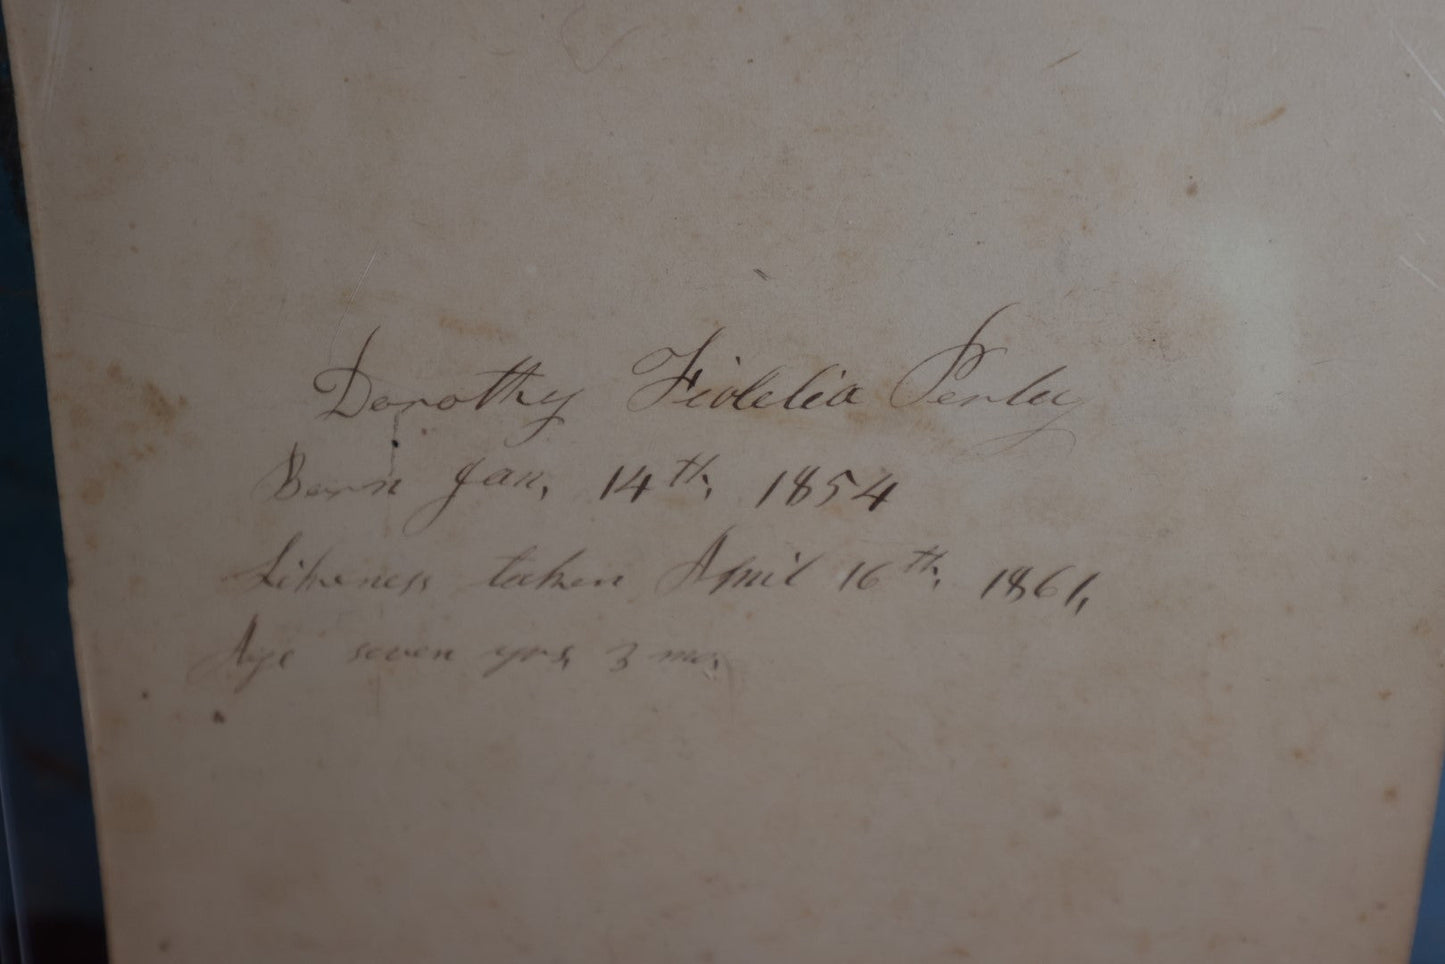 Dorothy Fidelia Perley
Born Jan, 14th, 1854
Likeness taken April 16th, 1861,
Age seven yrs, 3 mo,